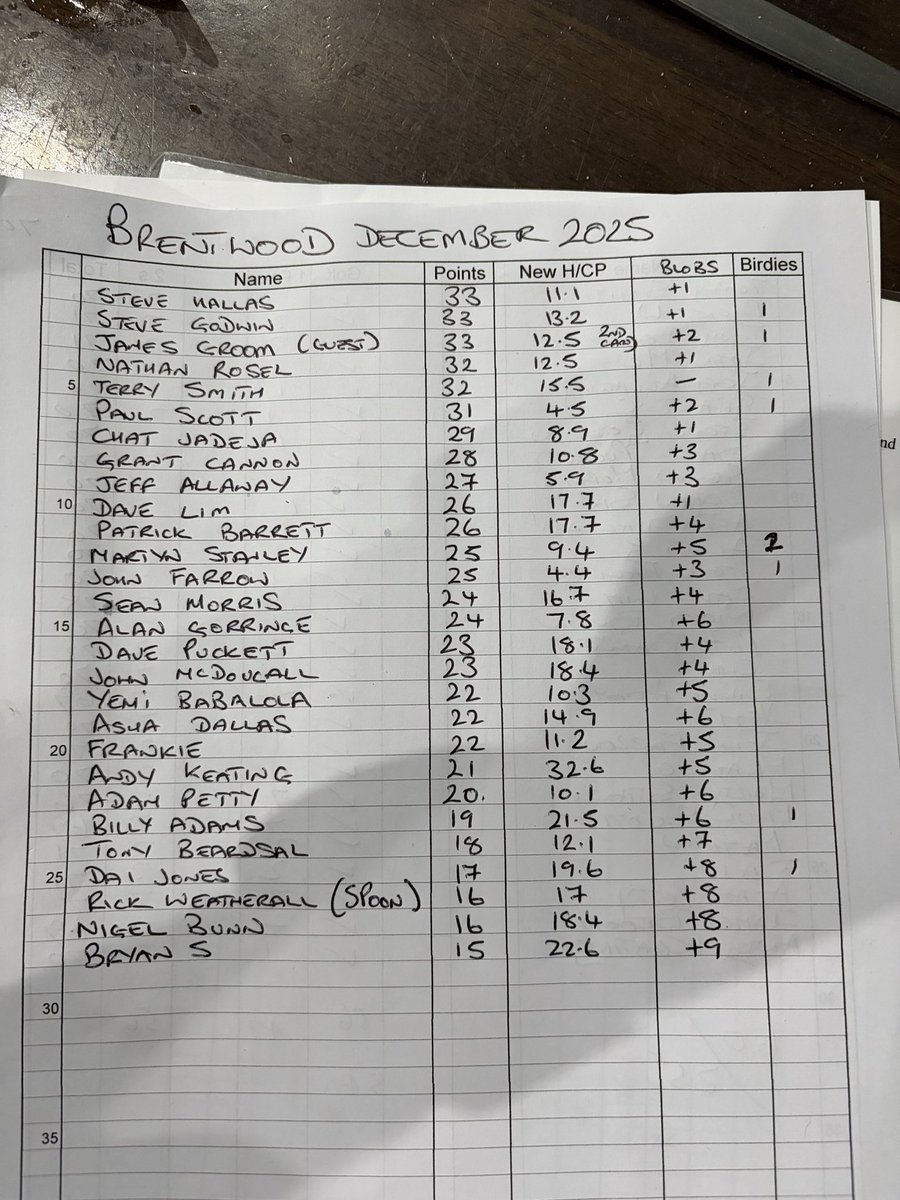 BRENTWOOD DECEMBER 2025
Name Points New H/CP BLOBS Birdies
STEVE HALLAS 33 11.1 +1
STEVE GODWIN 33 13.2 +1 1
JAMES GROOM (GUEST) 33 12.5 2ND CARD +2 1
NATHAN ROSEL 32 12.5 +1
5 TERRY SMITH 32 15.5 — 1
PAUL SCOTT 31 4.5 +2 1
CHAT JADEJA 29 8.9 +1
GRANT CANNON 28 10.8 +3
JEFF ALLAWAY 27 5.9 +3
10 DAVE LIM 26 17.7 +1
PATRICK BARRETT 26 17.7 +4
MARTYN STANLEY 25 9.4 +5 2
JOHN FARROW 25 4.4 +3 1
SEAN MORRIS 24 16.7 +4
15 ALAN GORRINGE 24 7.8 +6
DAVE PUCKETT 23 18.1 +4
JOHN McDOUGALL 23 18.4 +4
YEMI BABALOLA 22 10.3 +5
ASHA DALLAS 22 14.9 +6
20 FRANKIE 22 11.2 +5
ANDY KEATING 21 32.6 +5
ADAM PETTY 20. 10.1 +6
BILLY ADAMS 19 21.5 +6 1
TONY BEARDSAL 18 12.1 +7
25 DAI JONES 17 19.6 +8 1
RICK WEATHERALL (SPOON) 16 17 +8
NIGEL BUNN 16 18.4 +8
BRYAN S 15 22.6 +9
30
35
nd